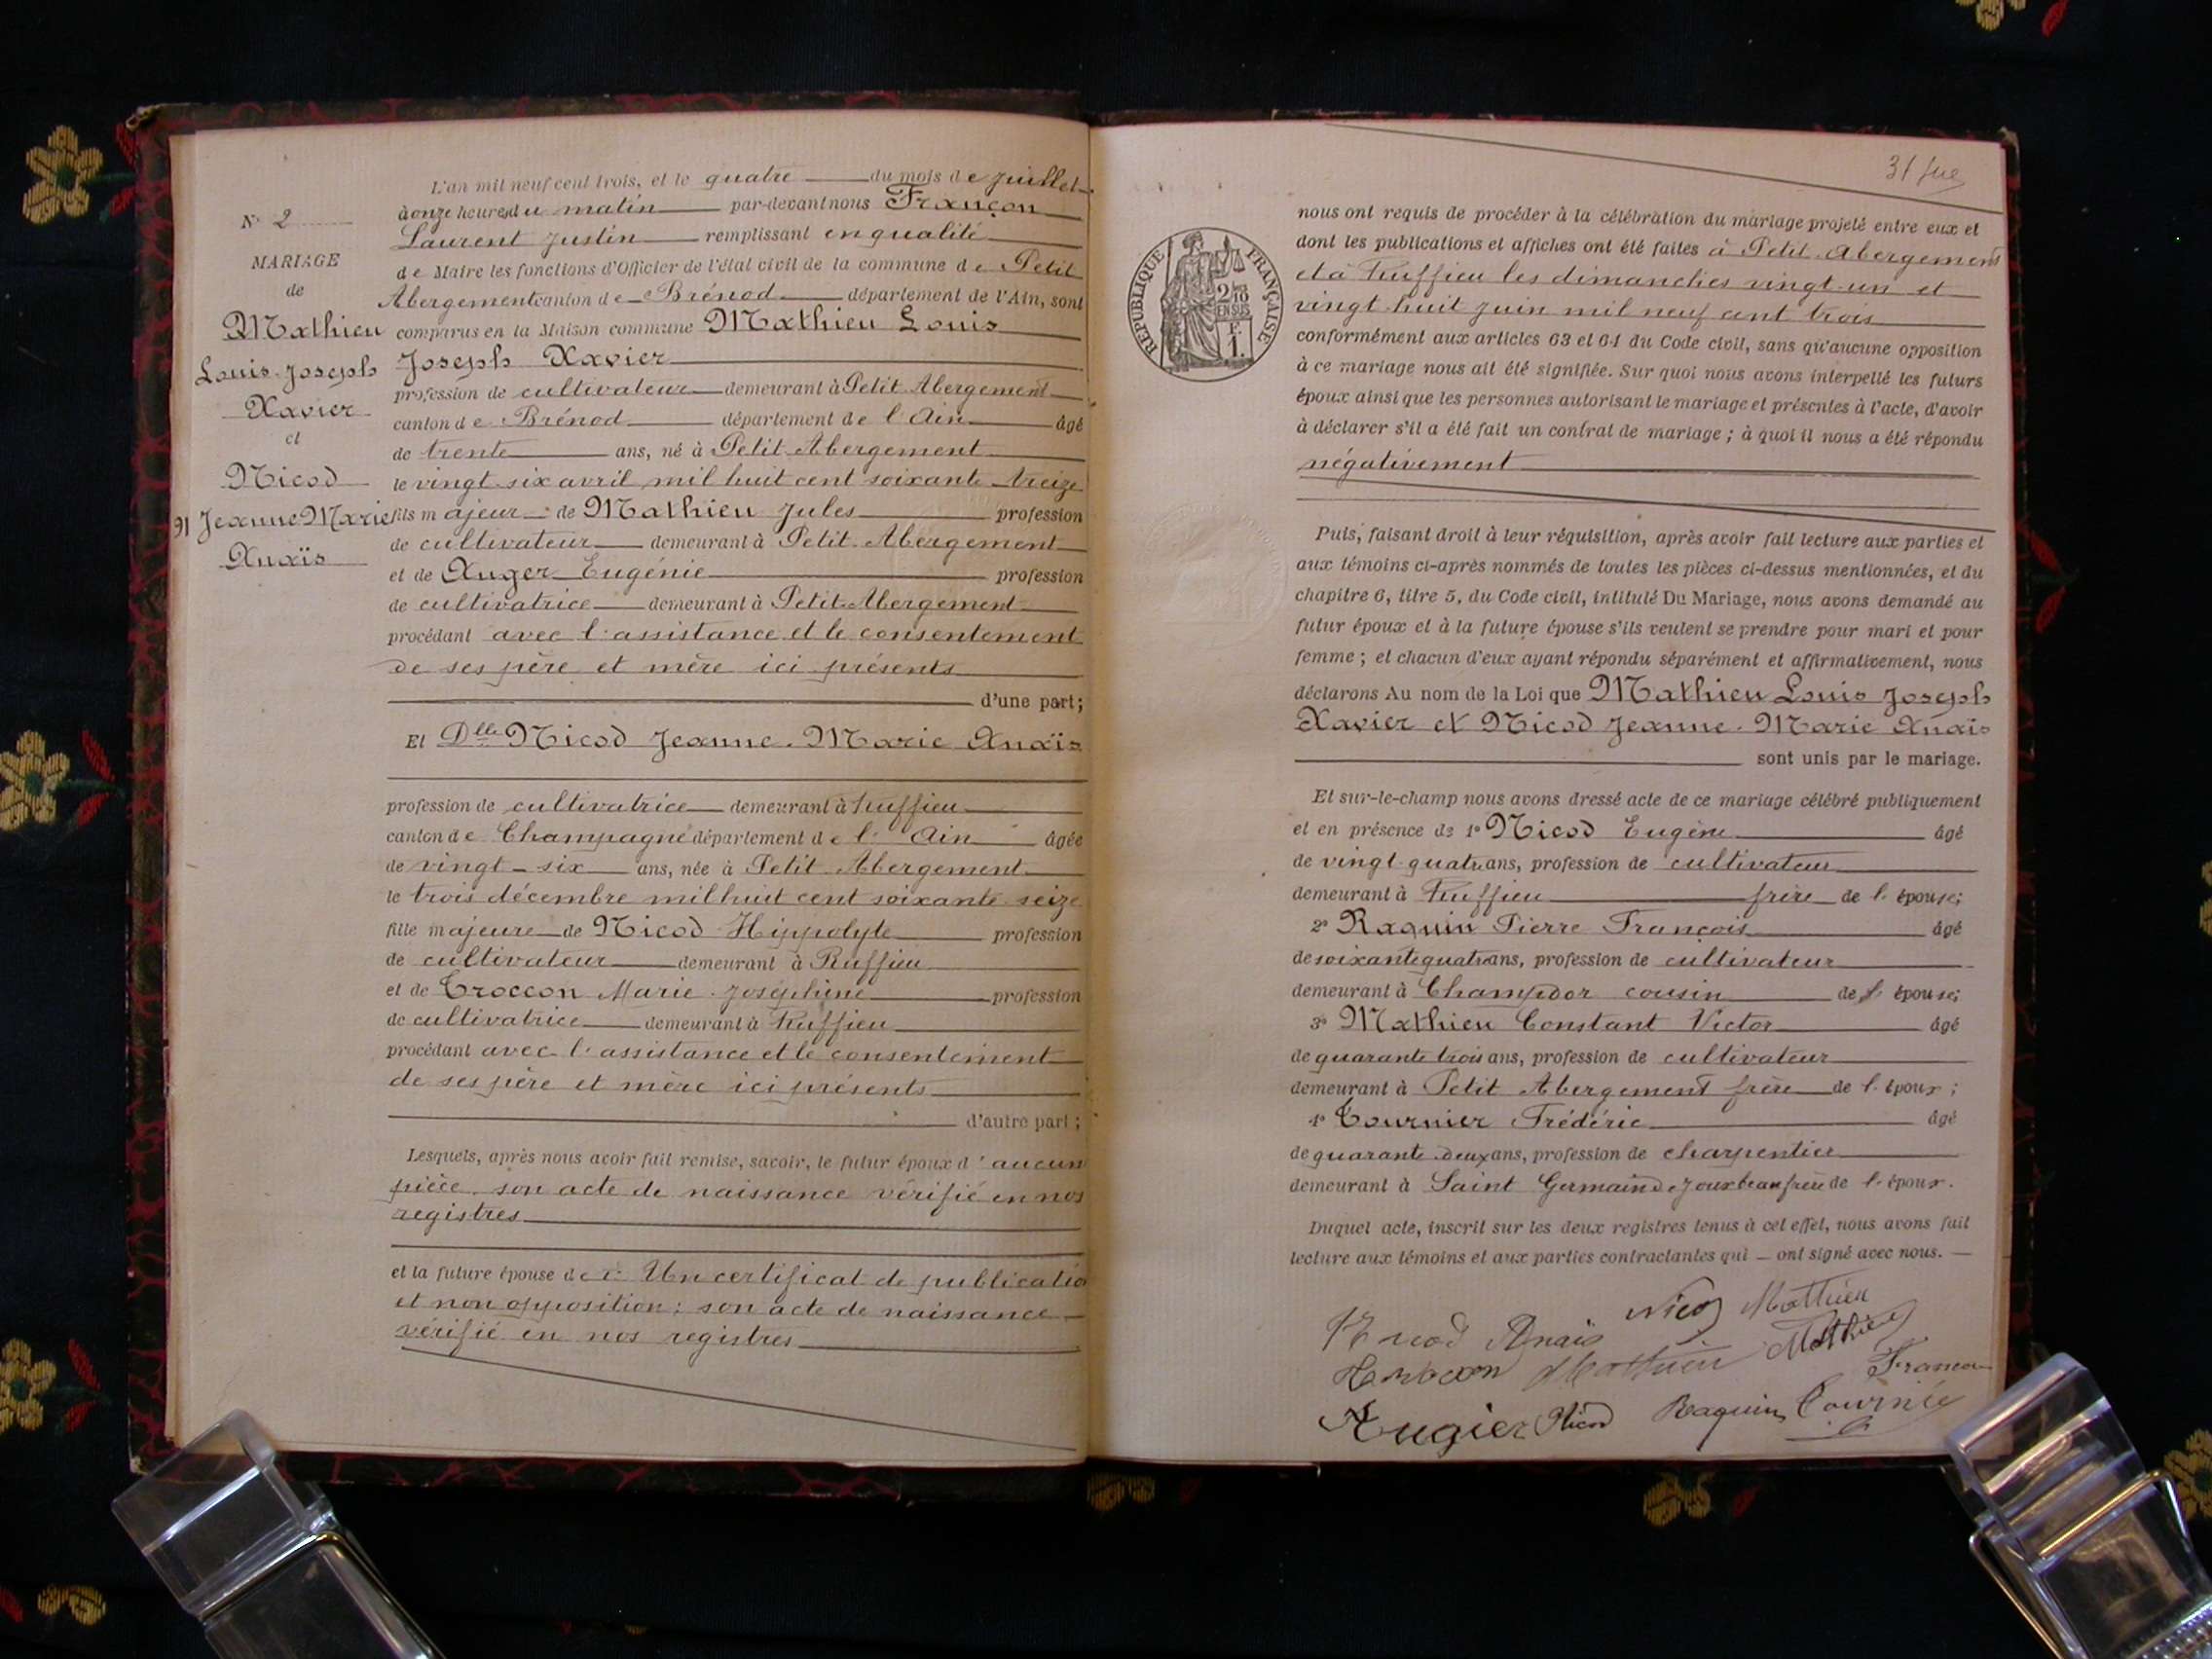 L'an mil neuf cent trois, et le quatre du mois de juillet
à onze heures du matin par-devant nous Françon
Laurent Justin remplissant en qualité
de Maire les fonctions d'Officier de l'état civil de la commune de Petit
Abergement canton de Brénod département de l'Ain, sont
comparus en la Maison commune Mathieu Louis
Joseph Xavier
profession de cultivateur demeurant à Petit-Abergement
canton de Brénod département de l'Ain âgé
de trente ans, né à Petit-Abergement
le vingt-six avril mil huit cent soixante-treize
fils majeur de Mathieu Jules profession
de cultivateur demeurant à Petit-Abergement
et de Auger Eugénie profession
de cultivatrice demeurant à Petit-Abergement
procédant avec l'assistance et le consentement
de ses père et mère ici présents
d'une part;
Et Dlle Nicod Jeanne-Marie Anaïs
profession de cultivatrice demeurant à Ruffieu
canton de Champagne département de l'Ain âgée
de vingt-six ans, née à Petit-Abergement
le trois décembre mil huit cent soixante-seize
fille majeure de Nicod Hippolyte profession
de cultivateur demeurant à Ruffieu
et de Troccon Marie-Joséphine profession
de cultivatrice demeurant à Ruffieu
procédant avec l'assistance et le consentement
de ses père et mère ici présents
d'autre part;
Lesquels, après nous avoir fait remise, savoir, le futur époux d'aucun
pièce. son acte de naissance vérifié en nos
registres
et la future épouse de : Un certificat de publication
et non opposition; son acte de naissance
vérifié en nos registres
N° 2
MARIAGE
de
Mathieu
Louis-Joseph
Xavier
et
Nicod
91 Jeanne Marie
Anaïs
31
RÉPUBLIQUE FRANÇAISE
2/10
EN SUS
F.
1.
nous ont requis de procéder à la célébration du mariage projeté entre eux et
dont les publications et affiches ont été faites à Petit-Abergement
et à Ruffieu les dimanches vingt-un et
vingt-huit juin mil neuf cent trois
conformément aux articles 63 et 64 du Code civil, sans qu'aucune opposition
à ce mariage nous ait été signifiée. Sur quoi nous avons interpellé les futurs
époux ainsi que les personnes autorisant le mariage et présentes à l'acte, d'avoir
à déclarer s'il a été fait un contrat de mariage; à quoi il nous a été répondu
négativement
Puis, faisant droit à leur réquisition, après avoir fait lecture aux parties et
aux témoins ci-après nommés de toutes les pièces ci-dessus mentionnées, et du
chapitre 6, titre 5, du Code civil, intitulé Du Mariage, nous avons demandé au
futur époux et à la future épouse s'ils veulent se prendre pour mari et pour
femme; et chacun d'eux ayant répondu séparément et affirmativement, nous
déclarons Au nom de la Loi que Mathieu Louis Joseph
Xavier et Nicod Jeanne-Marie Anaïs
sont unis par le mariage.
Et sur-le-champ nous avons dressé acte de ce mariage célébré publiquement
et en présence de 1° Nicod Eugène âgé
de vingt-quatre ans, profession de cultivateur
demeurant à Ruffieu frère de l'épouse;
2° Raquin Pierre François âgé
de soixante quatre ans, profession de cultivateur
demeurant à Champdor cousin de l'épouse;
3° Mathieu Constant Victor âgé
de quarante trois ans, profession de cultivateur
demeurant à Petit Abergement frère de l'époux;
4° Tournier Frédéric âgé
de quarante-deux ans, profession de charpentier
demeurant à Saint Germain de Joux beau frère de l'époux.
Duquel acte, inscrit sur les deux registres tenus à cet effet, nous avons fait
lecture aux témoins et aux parties contractantes qui ont signé avec nous.
Nicod Anaïs Nicod Mathieu
Mathieu Mathieu
Augier Nicod Raquin Tournier